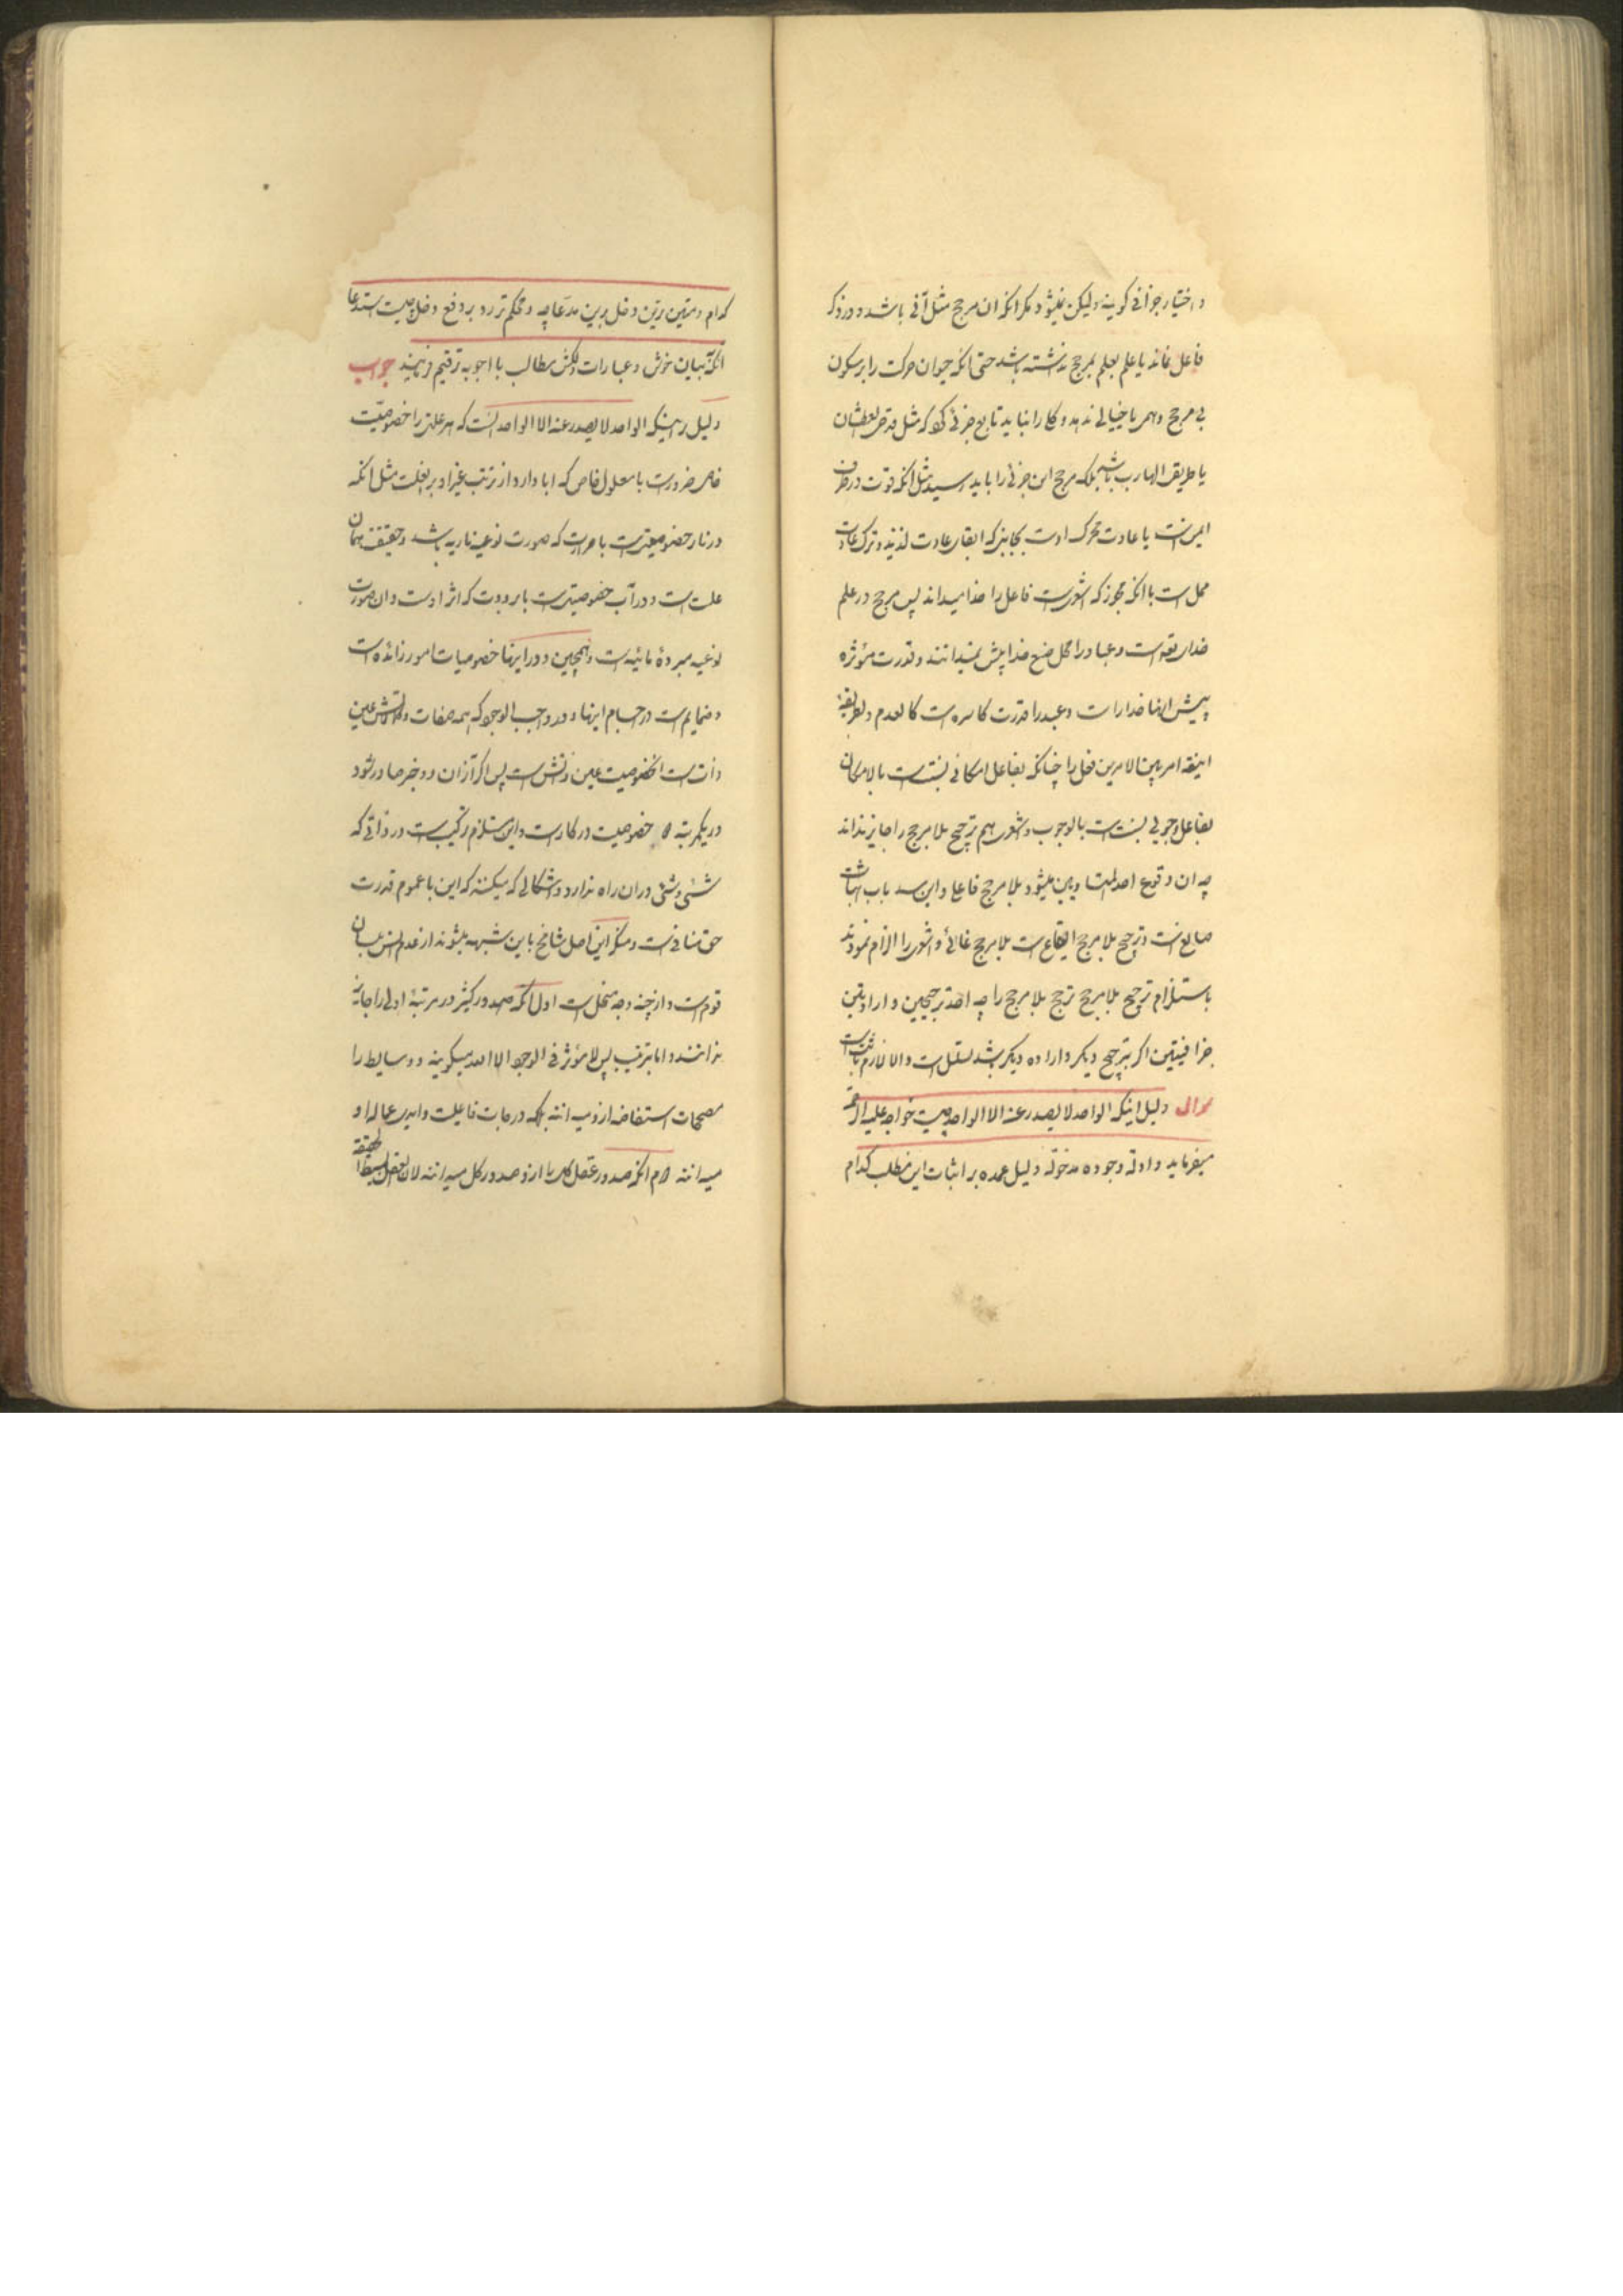 و اختیار جزافی گویند ولیکن نمیشود مگر انکه ان مرجح مثل آنی باشد و در ذکر
فاعل نماند یا علم بعلم بمرجح نداشته باشد حتی انکه حیوان حرکت را بر سکون
بی مرجح وهمی یا خیالی ندهد و کلی را نباید تابع جزئی کرد که مثل قدحی العطشان
یا طریقی الهارب باشد بلکه مرجح این جزئی را باید رسید مثل انکه قوت در طرف
ایمن است یا عادت محرک اوست بجانبی که ابقای عادت لذیذ و ترک عادت
ممل است با انکه مجوز که اشعریست فاعل را خدا میداند پس مرجح در علم
خدای تعالی است و عباد را کل صنع خدا پیش نمیدانند و قدرت مؤثره
پیش اینها خدا راست و عبد را قدرت کاسبه است کالعدم و بطریقه
امر بین الامرین فعل را چنانکه بفاعل امکانی نسبت است بالامکان
بفاعل وجوبی نسبت است بالوجوب و اشعری هم ترجح بلا مرجح را جایز نداند
چه ان وقوع احد المتساویین میشود بلا مرجح فاعلی و این سد باب اثبات
صانع است و ترجیح بلا مرجح ایقاع است بلا مرجح غائی و اشعری را الزام نمودند
باستلزام ترجیح بلا مرجح ترجح بلا مرجح را چه احد ترجیحین و ارادتین
جزافیتین اگر بترجیح دیگر و اراده دیگر باشد تسلسل است والا لازم ثابت است
سوال دلیل اینکه الواحد لا یصدر عنه الا الواحد چیست خواجه علیه الرحمة
میفرماید و ادلة وجوده مدخولة دلیل عمده بر اثبات این مطلب کدام
کدام و متین ترین دخل برین مدعا چه و محکم تر رد بر دفع دخل چیست استدعا
انکه ببیان خوش و عبارات دلکش مطالب با اجوبه ترقیم فرمایند جواب
دلیل بر اینکه الواحد لا یصدر عنه الا الواحد انست که هر علتی را خصوصیت
خاص ضرورست با معلول خاص که ابا دارد از ترتب غیر او بر انعلت مثل انکه
در نار خصوصیتی است با حرارت که صورت نوعیه ناریه باشد و حقیقت همان
علت است و در آب خصوصیتی است با برودت که اثر اوست و ان صورت
نوعیه مبرده مائیه است و همچنین و در اینها خصوصیات امور زائده است
و ضمایم است در اجسام اینها و در واجب الوجود که همه صفات و کمالاتش عین
ذات است انخصوصیت عین ذاتش است پس اگر از ان دو چیز صادر شود
در یکمرتبه دو خصوصیت در کارست و این مستلزم ترکیب است در ذاتی که
شیء و شیء دران راه ندارد و اشکالی که میکنند که این با عموم قدرت
حق منافی است و منکر این اصل شامخ باین شبهه میشوند از عدم لسان
قوم است و از چند وجه منحل است اول انکه صدور کثیر در مرتبه اولی را جایز
ندانند و اما بترتیب پس لا مؤثر فی الوجود الا الله میگویند و وسایط را
مصححات استفاضه ازو میدانند بلکه درجات فاعلیت و ایدی عماله او
میدانند دوم انکه صدور عقل کلی را ازو صدور کل میدانند لان العقل بسیط الحقیقة